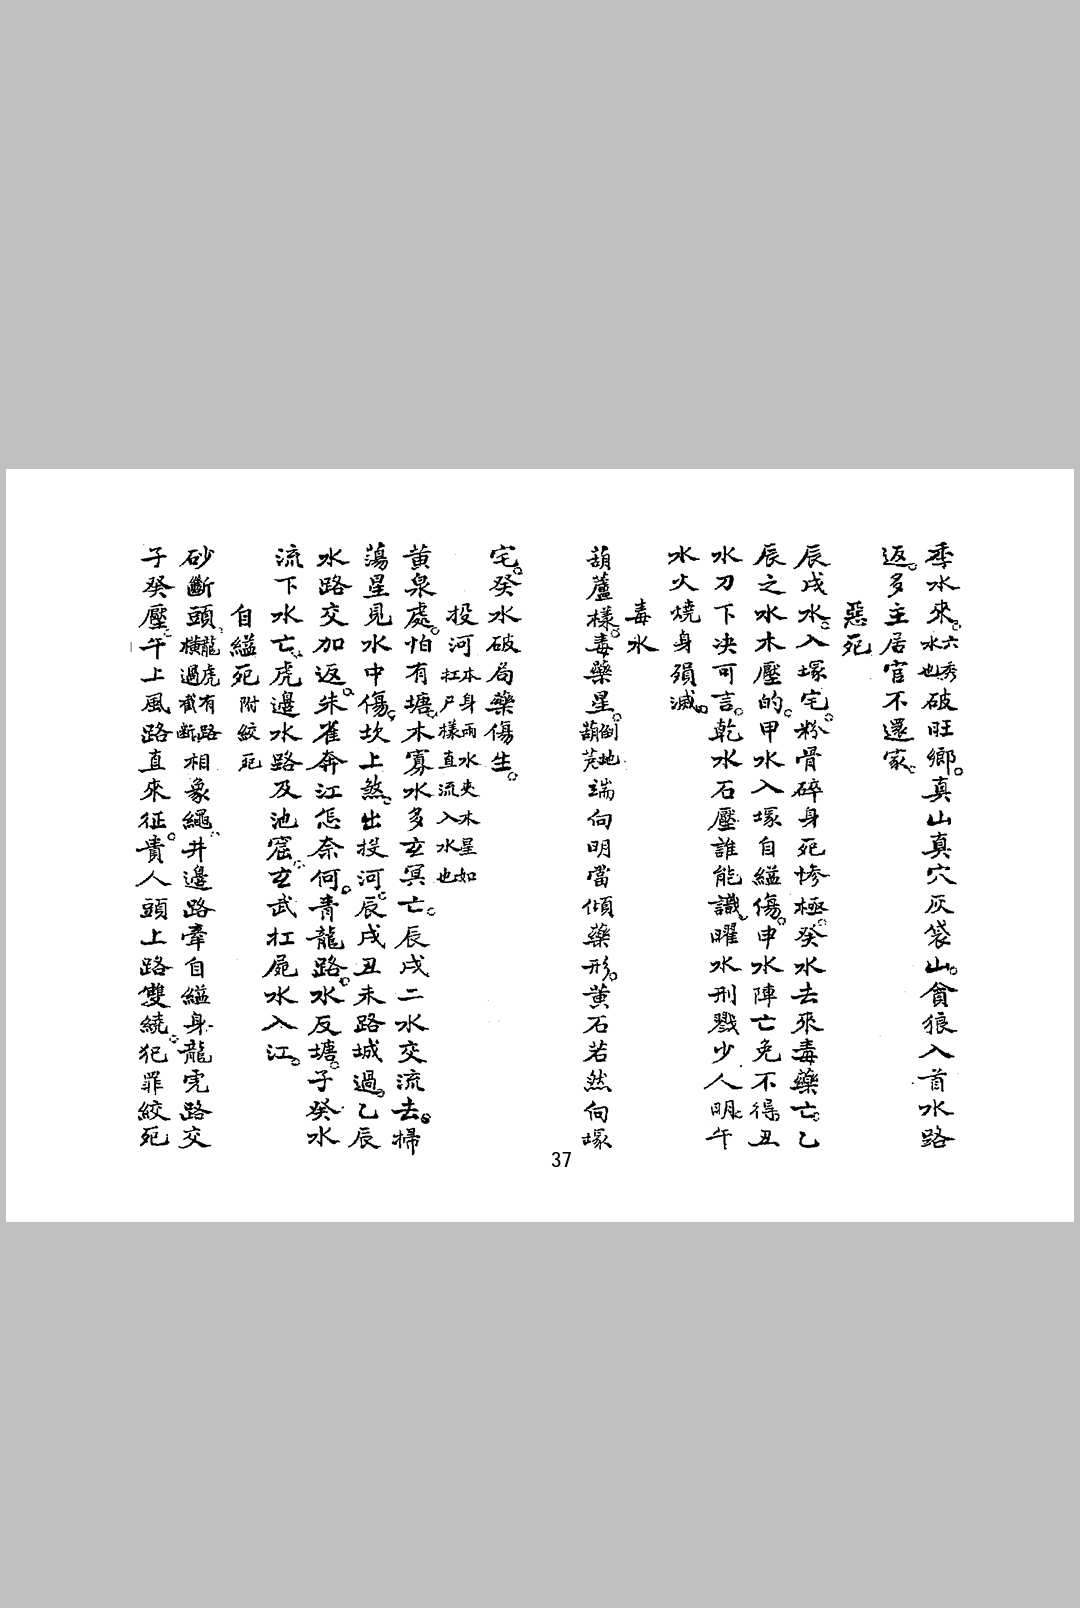 季水來。水六也秀破旺鄉。真山真穴灰袋山。貪狼入首水路
返。多主居官不還家。
惡死
辰戌水。入塚宅。粉骨碎身死慘極。癸水去來毒藥亡。乙
辰之水木壓的。甲水入塚自縊傷。申水陣亡免不得。丑
水刀下决可言。乾水石壓誰能識。曜水刑戮少人明。午
水火燒身殞滅。
毒水
葫蘆樣。毒藥星。倒地葫芦端向明當傾藥形。黃石若然向塚
宅。癸水破局藥傷生。
投河本身兩水夹木星如扛尸樣直流入水也
黃泉處。怕有塘。木寡水多玄冥亡。辰戌二水交流去。掃
蕩星見水中傷。坎上煞。出投河。辰戌丑未路城過。乙辰
水路交加返。朱雀奔江怎奈何。青龍路。水反塘。子癸水
流下水亡。虎邊水路及池窟。玄武扛屍水入江。
自縊死附絞死
砂斷頭。龍虎有路橫過截斷相象繩。井邊路牽自縊身。龍虎路交
子癸壓。午上風路直來征。貴人頭上路雙繞。犯罪絞死
37